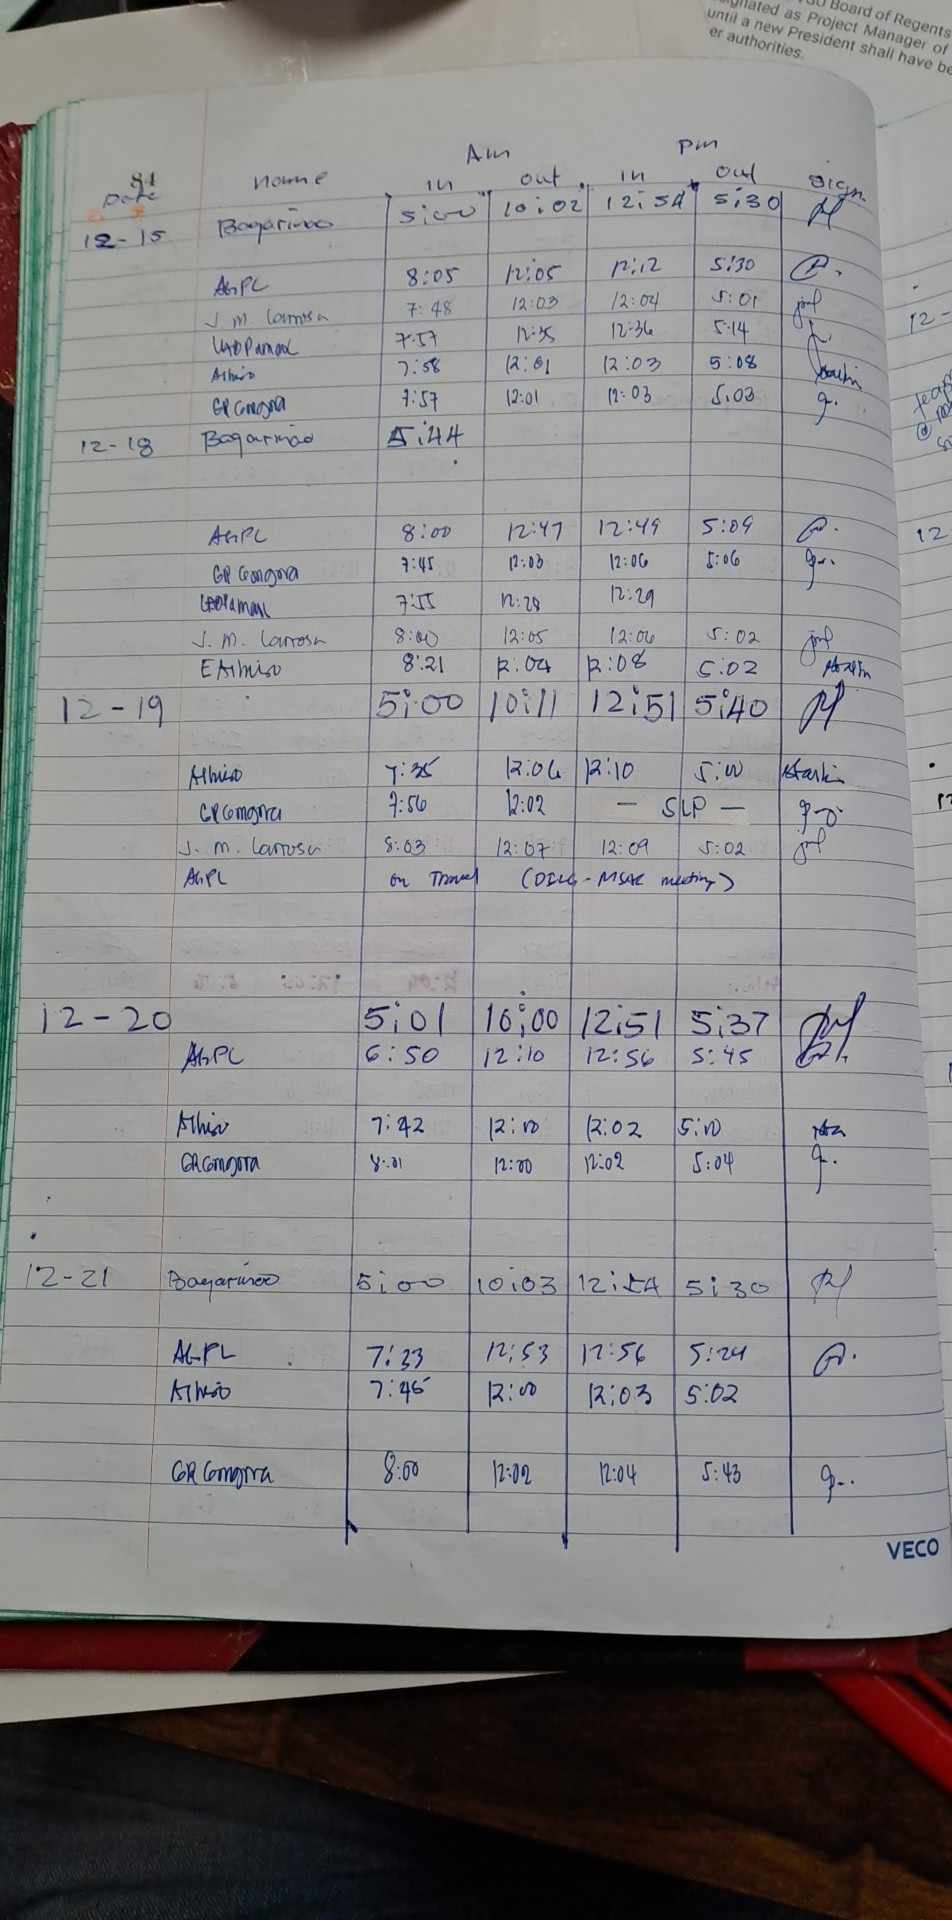 GU Board of Regents
ignated as Project Manager of
until a new President shall have be
er authorities.
Am Pm
Date Name In Out In Out Sign
12-15 Bagarinao 5:00 10:02 12:54 5:30
AGPL 8:05 12:05 12:12 5:30
J. M. Larrosa 7:48 12:03 12:04 5:01
7:57 12:35 12:36 5:14
Albiso 7:58 12:01 12:03 5:08
GR Gongora 7:57 12:01 12:03 5:03
12-18 Bagarinao 5:44
AGPL 8:00 12:47 12:49 5:09
GR Gongora 7:45 12:03 12:06 5:06
7:55 12:28 12:29
J. M. Larrosa 8:00 12:05 12:06 5:02
E Albiso 8:21 12:04 12:08 5:02
12-19 5:00 10:11 12:51 5:40
Albiso 7:35 12:06 12:10 5:00
GR Gongora 7:56 12:02 - SLP -
J. M. Larrosa 8:03 12:07 12:09 5:02
AGPL on Travel (DILG - meeting)
12-20 5:01 10:00 12:51 5:37
AGPL 6:50 12:10 12:56 5:45
Albiso 7:42 12:10 12:02 5:10
GR Gongora 8:01 12:00 12:02 5:04
12-21 Bagarinao 5:00 10:03 12:54 5:30
AGPL 7:33 12:53 12:56 5:24
Albiso 7:45 12:00 12:03 5:02
GR Gongora 8:00 12:02 12:04 5:43
VECO